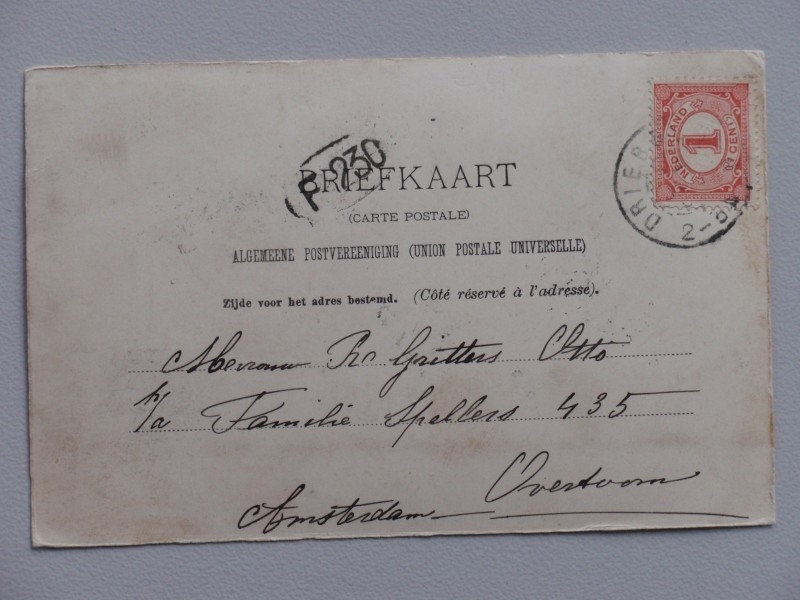 NEDERLAND
1
CENT
DRIEB
2-
F 230
BRIEFKAART
(CARTE POSTALE)
ALGEMEENE POSTVEREENIGING (UNION POSTALE UNIVERSELLE)
Zijde voor het adres bestemd. (Côté réservé à l'adresse).
Mevrouw Gritters Otto
p/a Familie Spellers 435
Overtoom
Amsterdam